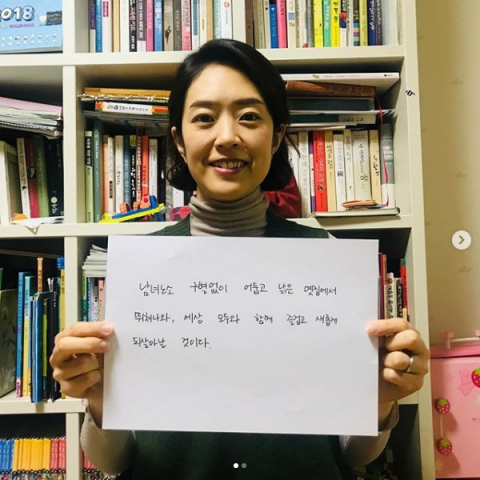 2018
남녀노소 구별없이 어둡고 낡은 옛집에서
뛰쳐나와, 세상 모두와 함께 즐겁고 새롭게
되살아날 것이다.